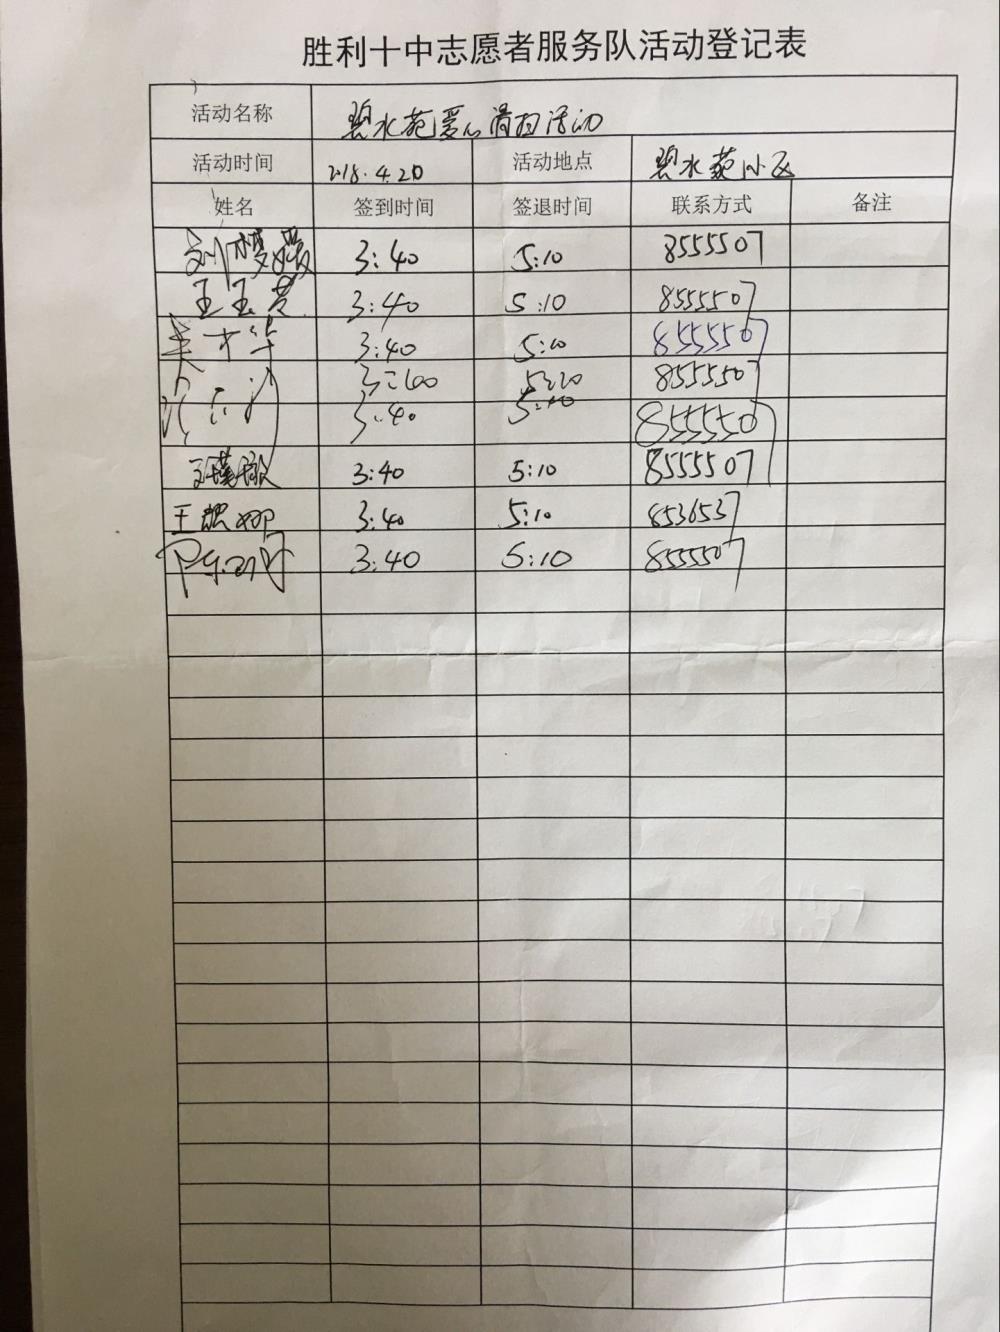 胜利十中志愿者服务队活动登记表
活动名称 碧水苑爱心清扫活动
活动时间 2018.4.20 活动地点 碧水苑小区
姓名 签到时间 签退时间 联系方式 备注
刘樱媛 3:40 5:10 8555507
王玉芳 3:40 5:10 8555507
3:40 5:10 8555507
5:20 8555507
3:40 5:10 8555507
3:40 5:10 8555507
王 娜 3:40 5:10 8536537
3:40 5:10 8555507